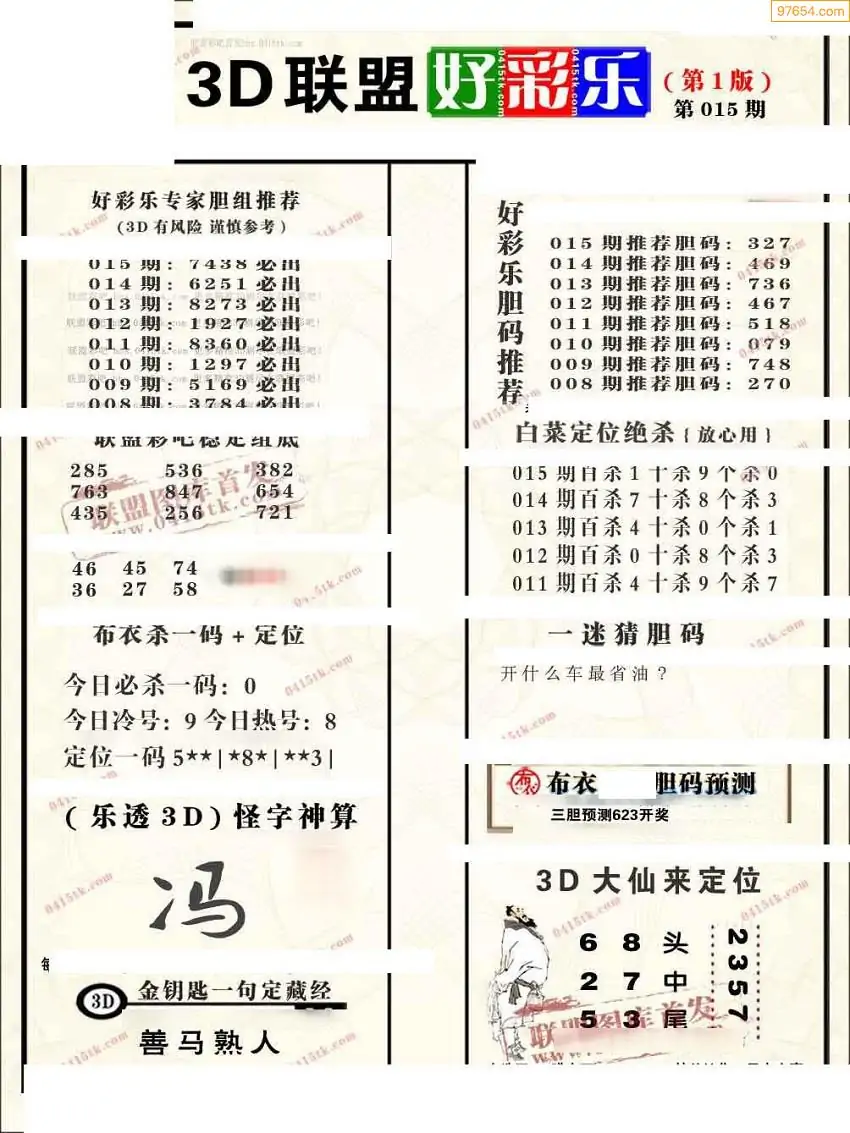 97654.com
3D联盟好彩乐
(第1版)
第 015 期
好彩乐专家胆组推荐
(3D有风险 谨慎参考)
015 期: 7438 必出
014 期: 6251 必出
013 期: 8273 必出
012 期: 1927 必出
011 期: 8360 必出
010 期: 1297 必出
009 期: 5169 必出
008 期: 3784 必出
联盟彩吧稳定组底
285 536 382
763 847 654
435 256 721
46 45 74
36 27 58
布衣杀一码+定位
今日必杀一码: 0
今日冷号: 9 今日热号: 8
定位一码 5**|*8*|**3|
(乐透3D)怪字神算
冯
3D 金钥匙一句定藏经
善马熟人
好彩乐胆码推荐
015期推荐胆码: 327
014期推荐胆码: 469
013期推荐胆码: 736
012期推荐胆码: 467
011期推荐胆码: 518
010期推荐胆码: 079
009期推荐胆码: 748
008期推荐胆码: 270
白菜定位绝杀{放心用}
015 期百杀1十杀9个杀0
014 期百杀7十杀8个杀3
013 期百杀4十杀0个杀1
012 期百杀0十杀8个杀3
011 期百杀4十杀9个杀7
一迷猜胆码
开什么车最省油?
布衣 胆码预测
三胆预测623开奖
3D大仙来定位
6 8 头
2 7 中
5 3 尾
2357
联盟图库首发
www.0415tk.com
0415tk.com